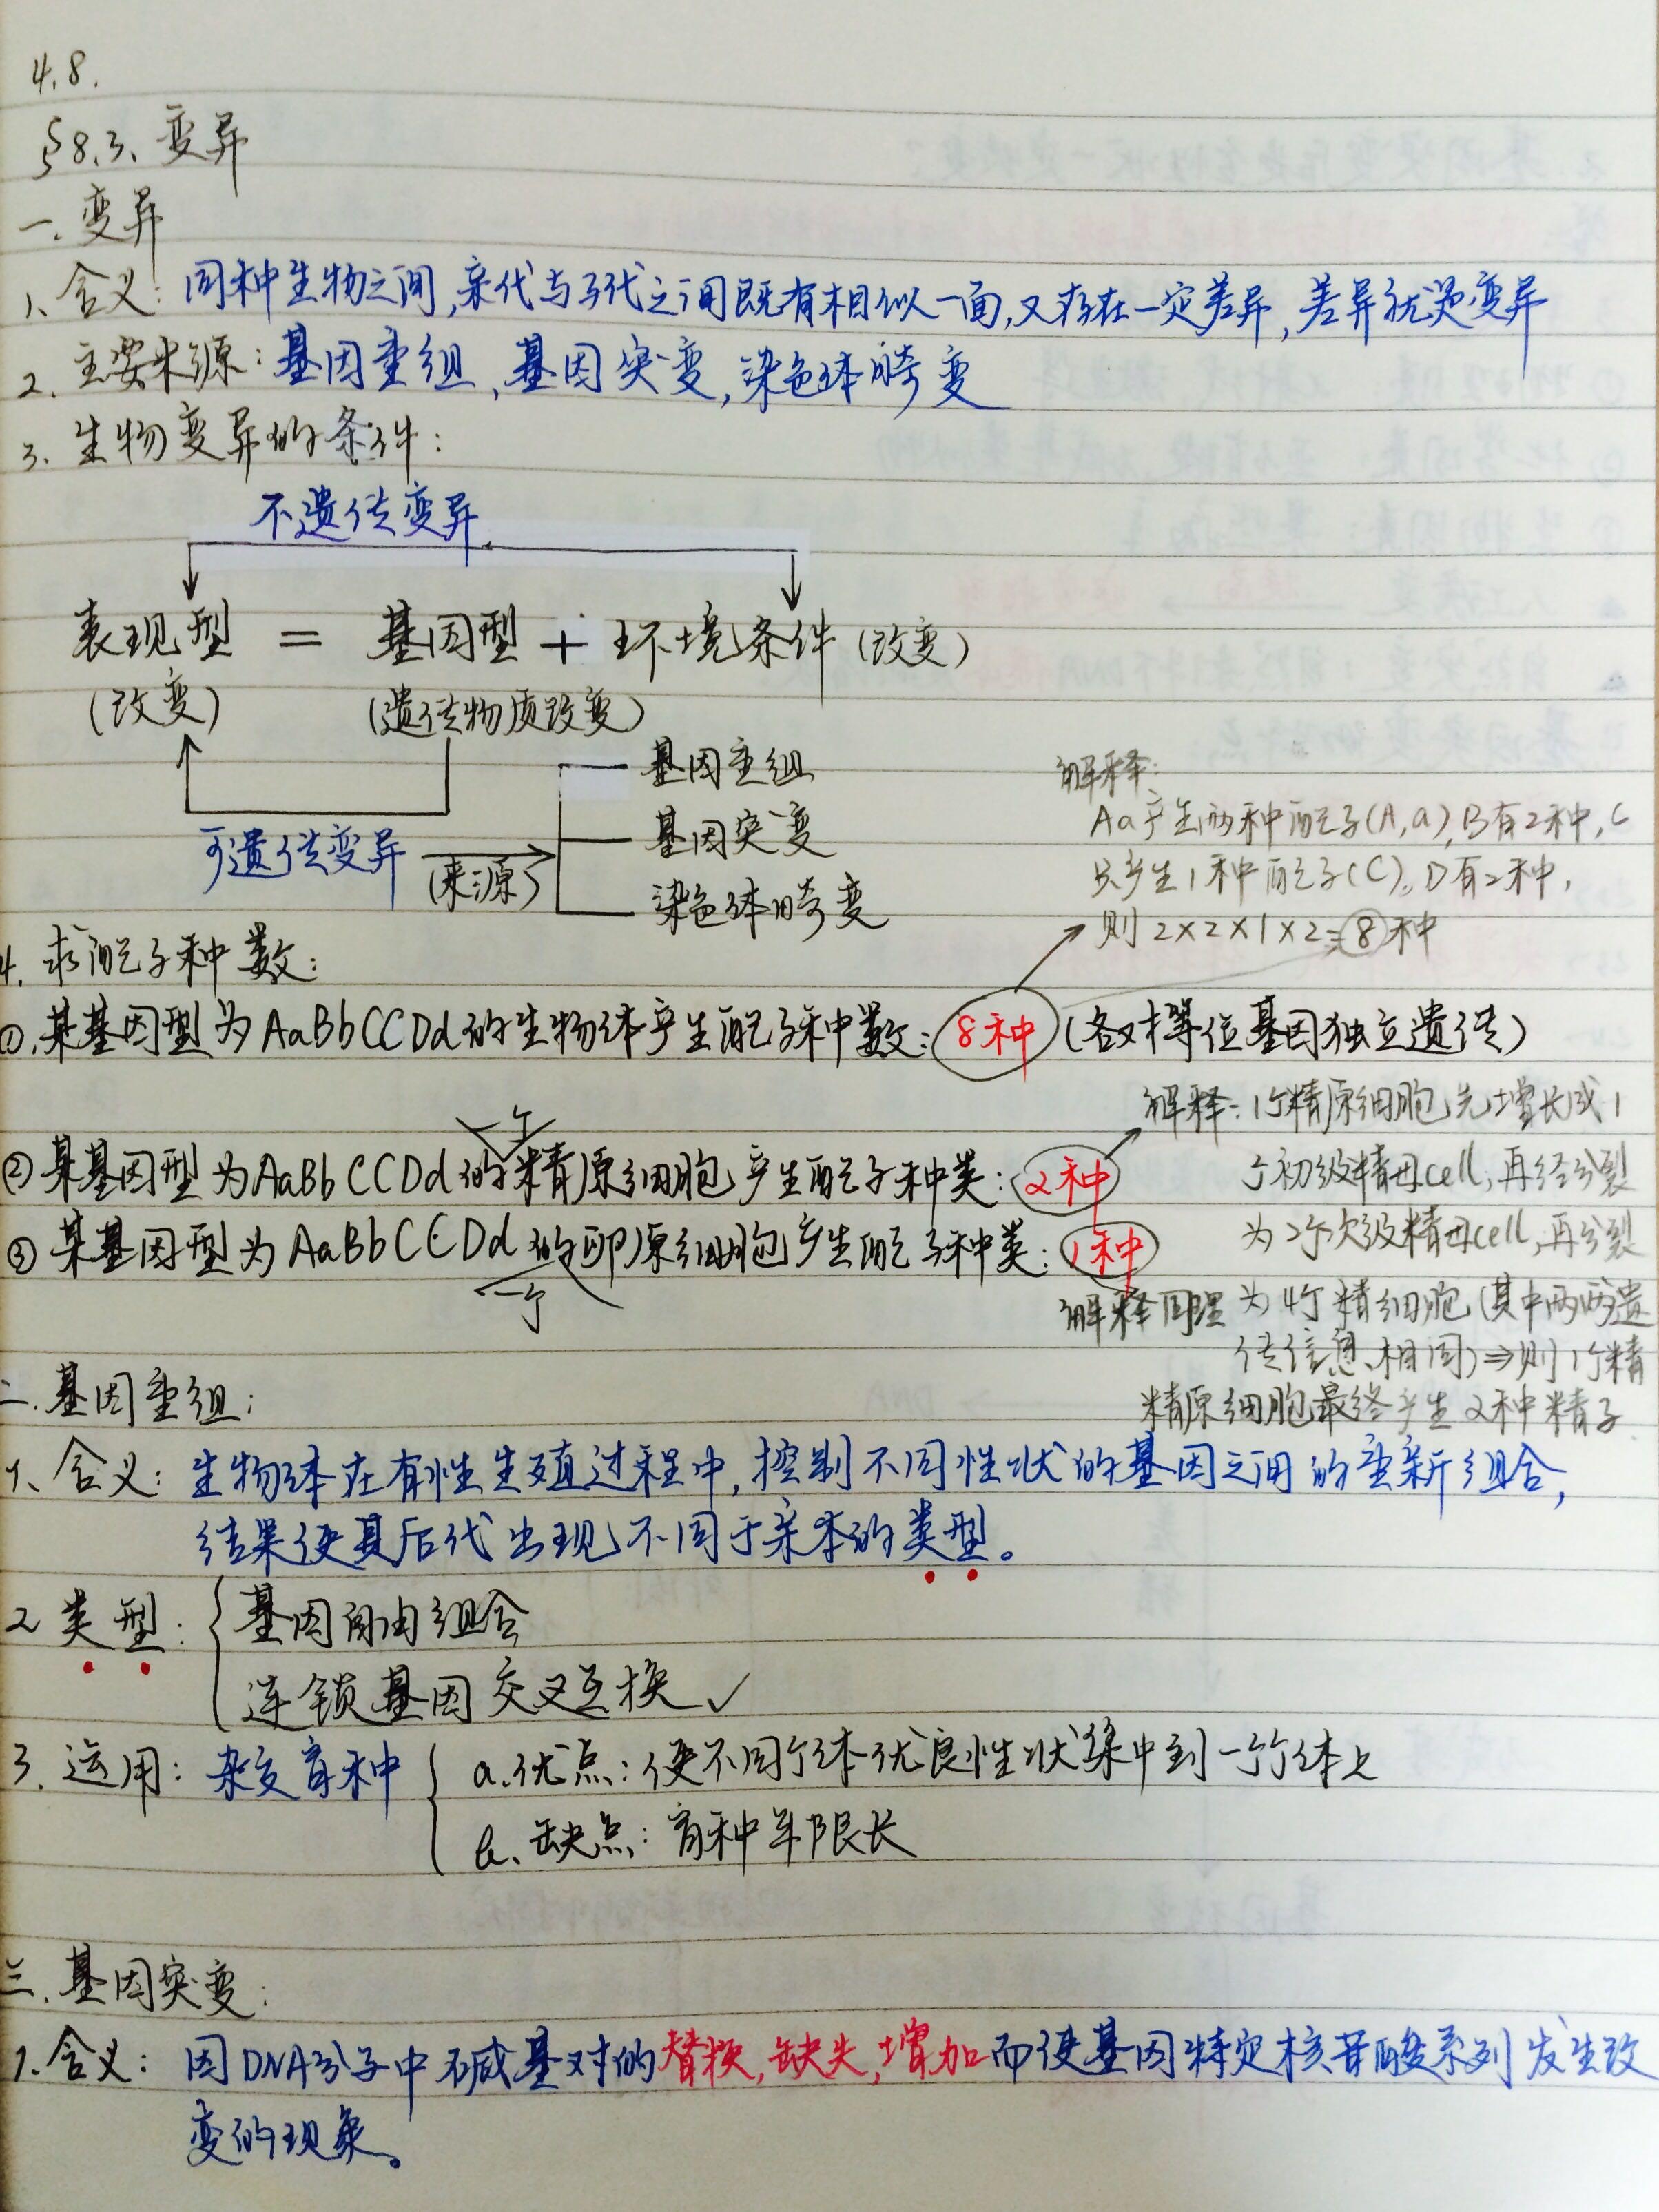 4.8.
§8.3、变异
一.变异
1、含义：同种生物之间,亲代与子代之间既有相似一面,又存在一定差异,差异就是变异
2.主要来源：基因重组,基因突变,染色体畸变
3.生物变异的条件：
不遗传变异
表现型 = 基因型 + 环境条件(改变)
(改变) (遗传物质改变)
基因重组
基因突变
染色体畸变
可遗传变异 (来源)
解释:
Aa产生两种配子(A,a),B有2种,C
只产生1种配子(C)。D有2种,
则2×2×1×2=8种
4.求配子种数：
①.某基因型为AaBbCCDd的生物体产生配子种数：8种(各对等位基因独立遗传)
一个
②某基因型为AaBbCCDd的精原细胞产生配子种类：2种
③某基因型为AaBbCCDd的卵原细胞产生配子种类：1种
一个
解释：1个精原细胞先增长成1
个初级精母cell,再经分裂
为2个次级精母cell,再分裂
为4个精细胞(其中两两遗
传信息相同)⇒则1个精
精原细胞最终产生2种精子
解释同理
二.基因重组：
1、含义：生物体在有性生殖过程中,控制不同性状的基因之间的重新组合,
结果使其后代出现不同于亲本的类型。
2 类型：{基因自由组合
连锁基因交叉互换✓
3.运用：杂交育种{a.优点：使不同个体优良性状集中到一个个体上
b、缺点：育种年限长
三.基因突变：
1.含义：因DNA分子中碱基对的替换,缺失,增加而使基因特定核苷酸系列发生改
变的现象。